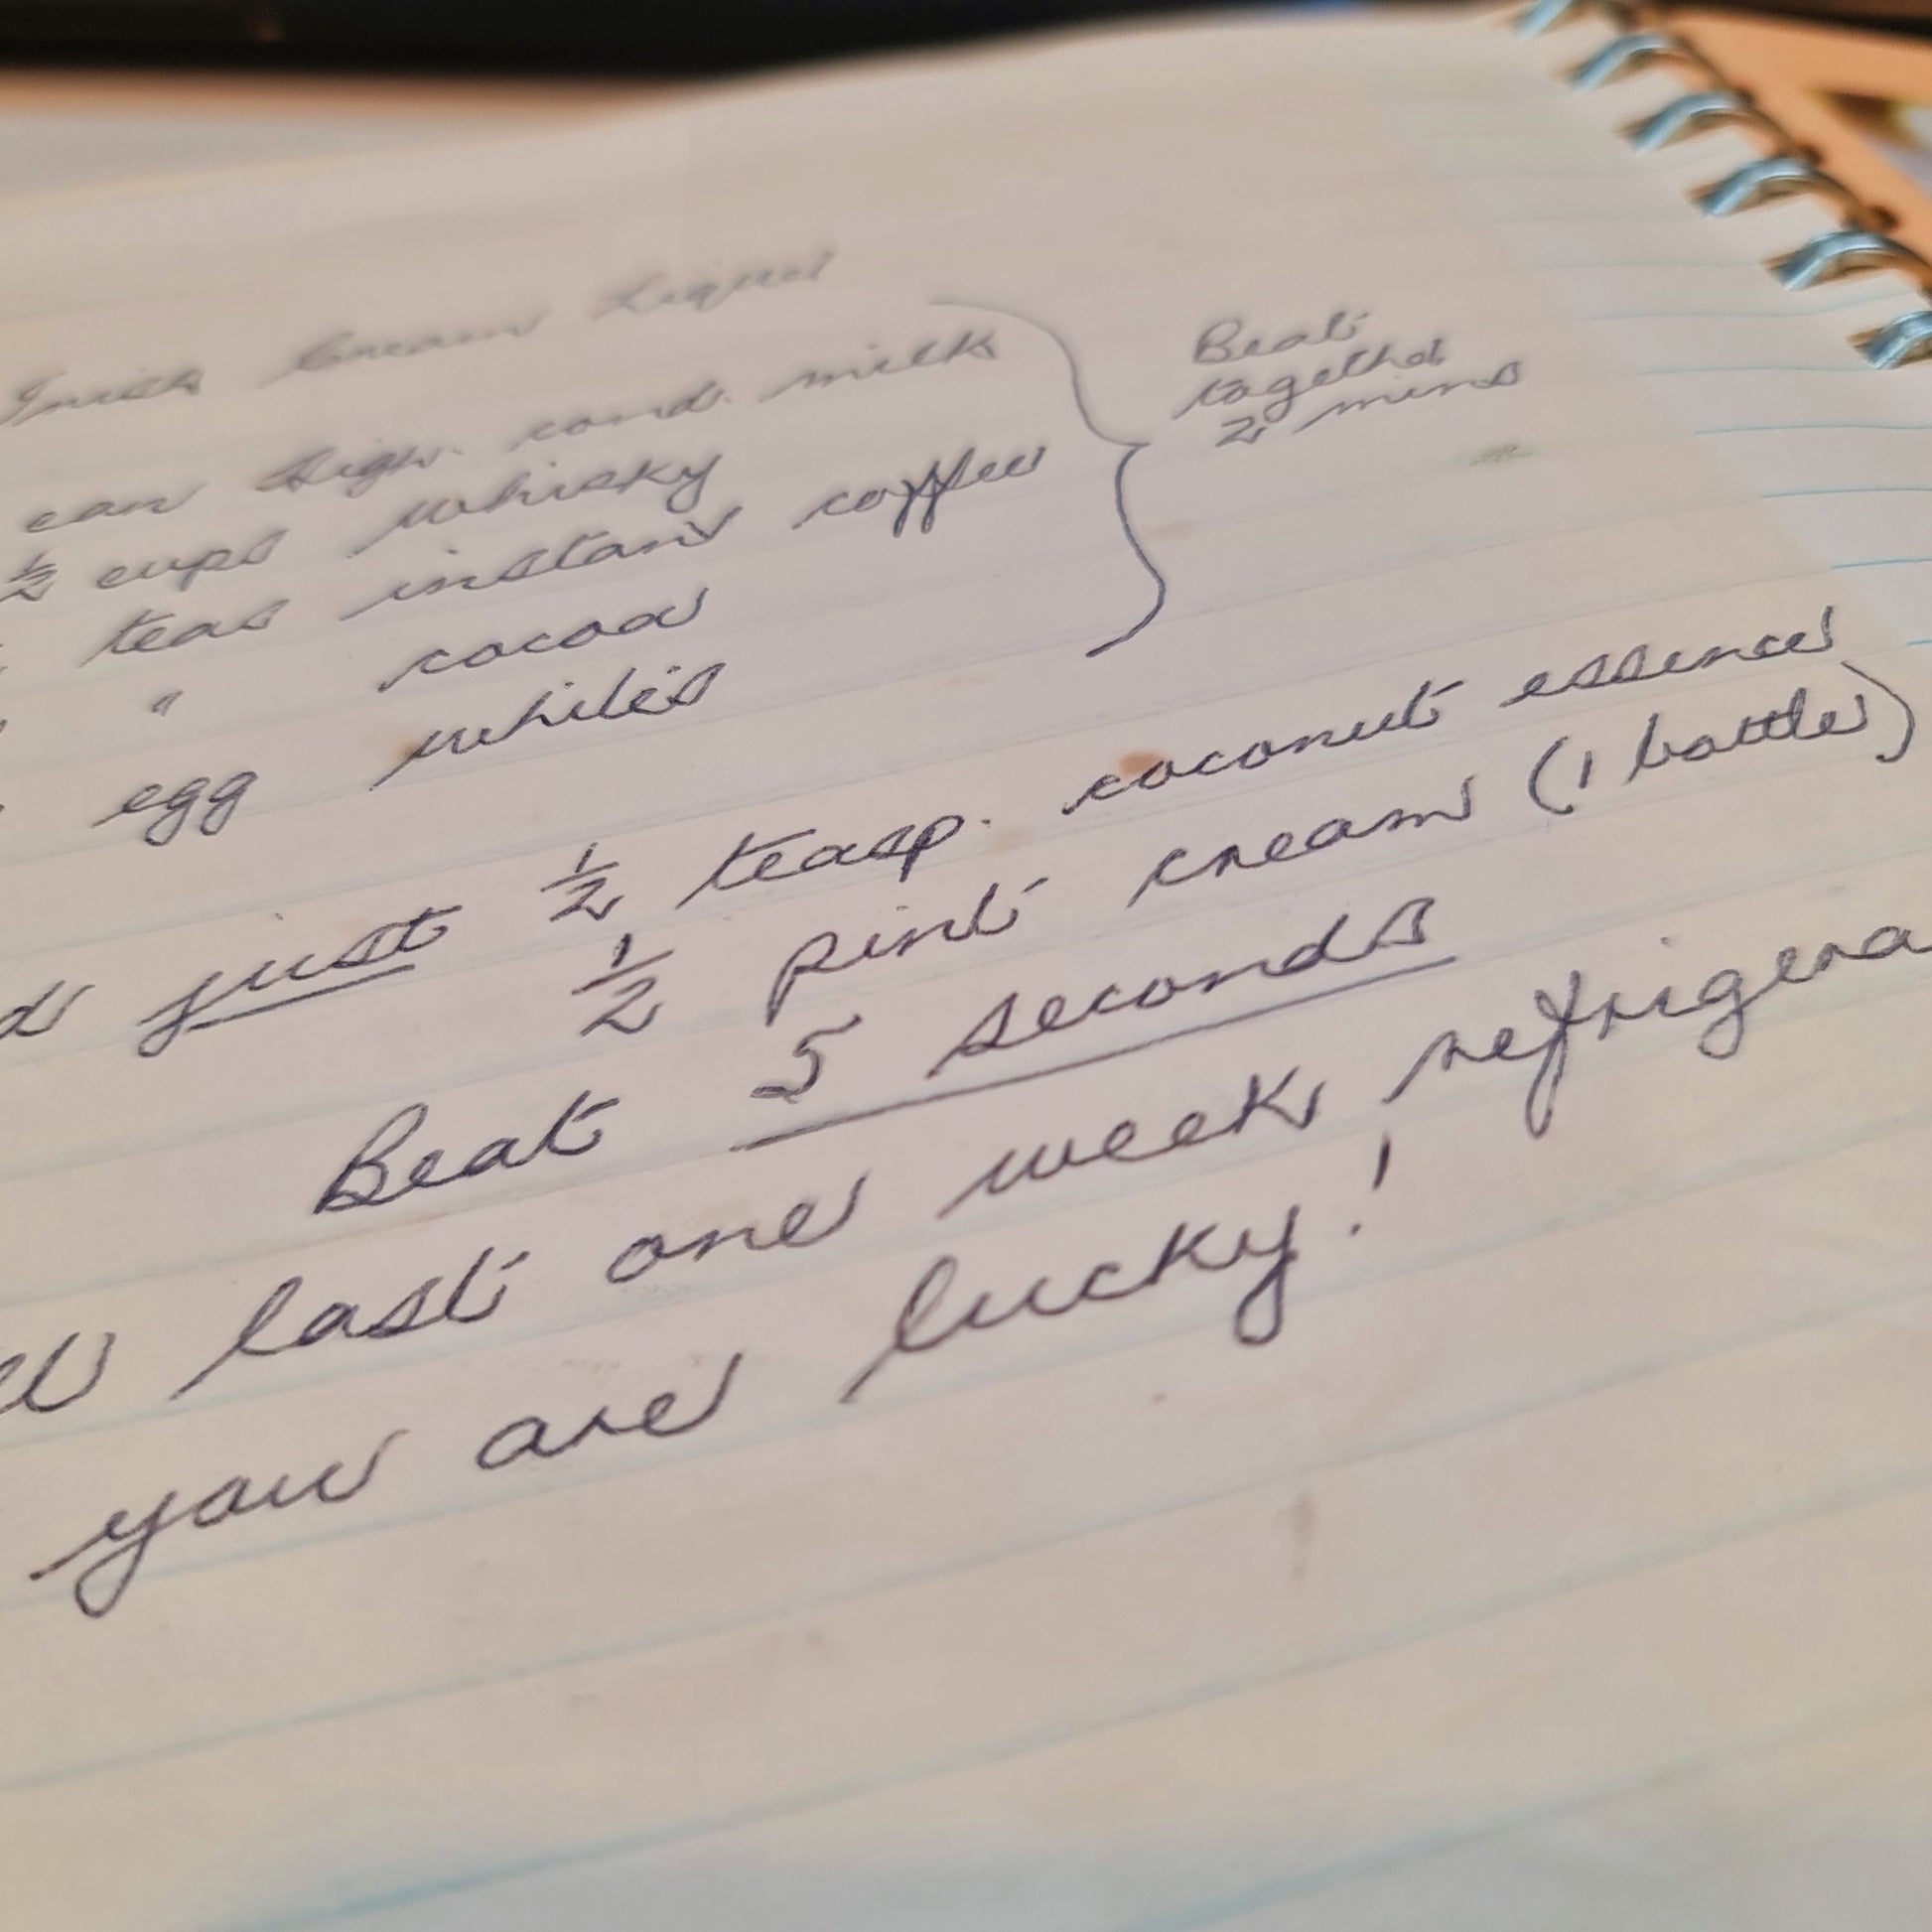 Irish Cream Liqueur
can High. cond. milk
½ cups whisky
teas instant coffee
" cocoa
egg whites
Beat
together
2 mins
just ½ teasp. coconut essence
½ pint cream (1 bottle)
Beat 5 seconds
last one week, refrigera
you are lucky!